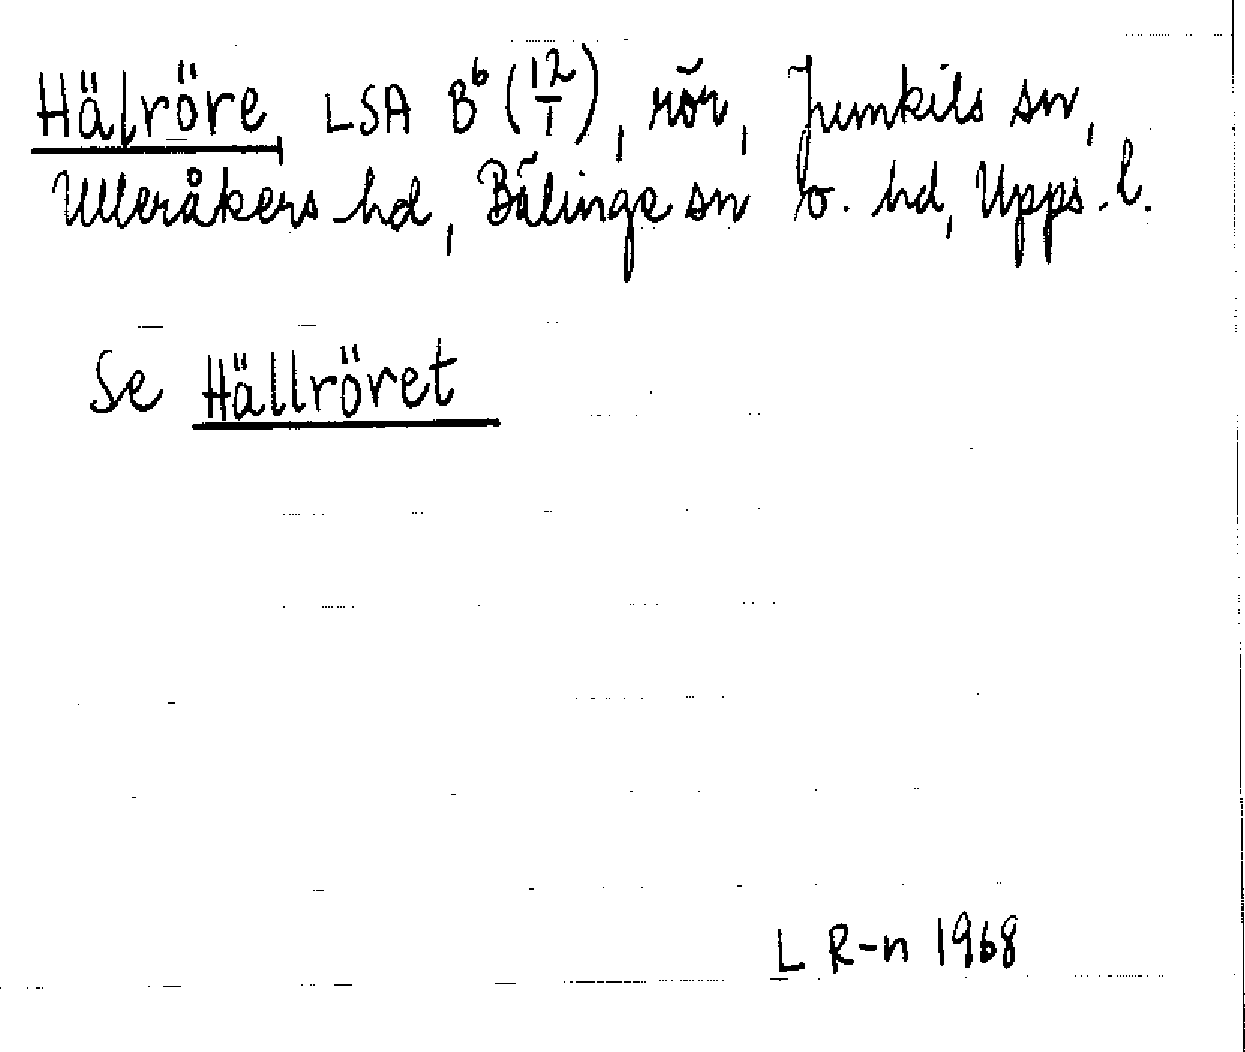 Hälröre, LSA B⁶ (12/1), rör, Jumkils sn,
Ulleråkers hd, Bälinge sn o. hd, Upps. l.
Se Hällröret
L R-n 1968